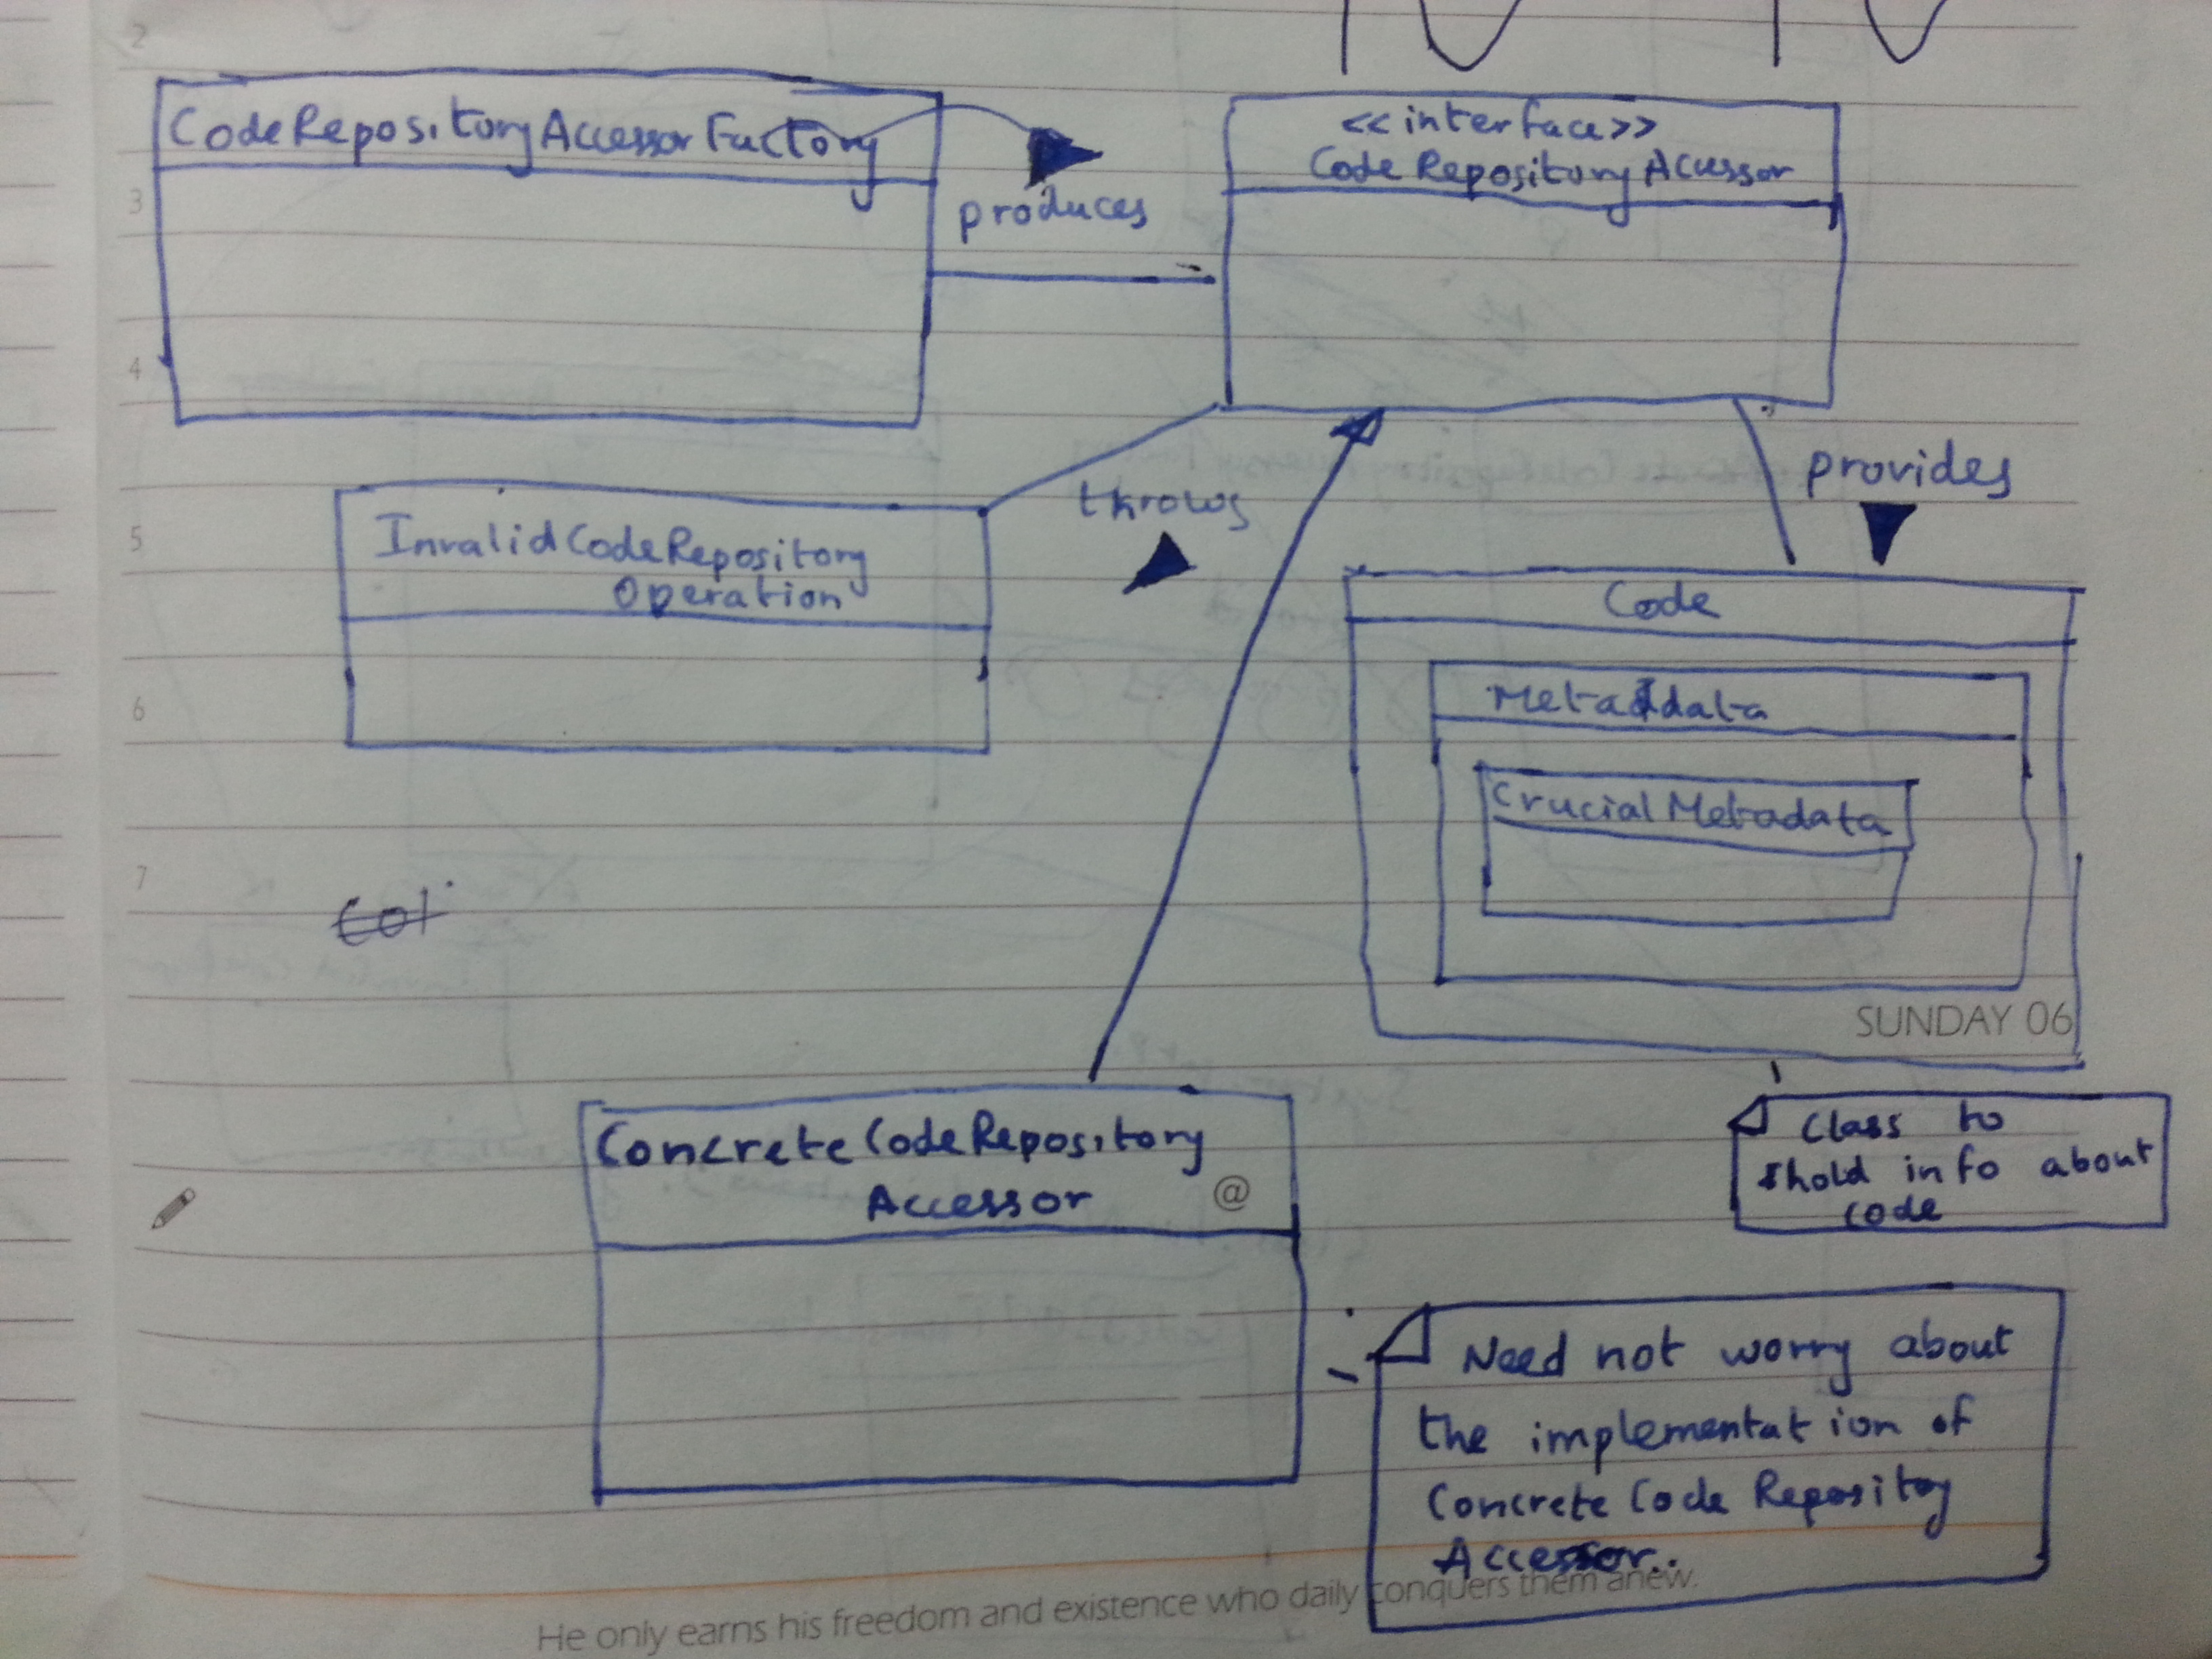 2
CodeRepositoryAccessorFactory
produces
<<interface>>
CodeRepositoryAcessor
3
4
throws
provides
5
InvalidCodeRepository
Operation
Code
6
Metadata
CrucialMetadata
7
SUNDAY 06
ConcreteCodeRepository
Accessor @
Class to
hold info about
code
Need not worry about
the implementation of
Concrete Code Repository
Accessor..
He only earns his freedom and existence who daily conquers them anew.